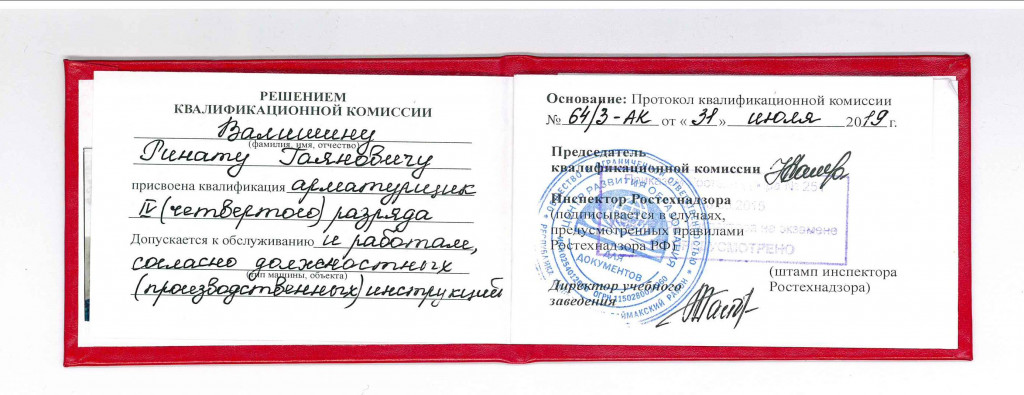 РЕШЕНИЕМ
КВАЛИФИКАЦИОННОЙ КОМИССИИ
Валишину
(фамилия, имя, отчество)
Ринату Гаяновичу
присвоена квалификация арматурщик
IV (четвертого) разряда
Допускается к обслуживанию и работам,
согласно должностных
(тип машины, объекта)
(производственных) инструкций
Основание: Протокол квалификационной комиссии
№ 64/3-АК от « 31 » июля 2019 г.
Председатель
квалификационной комиссии
Инспектор Ростехнадзора
(подписывается в случаях,
предусмотренных правилами
Ростехнадзора РФ)
(штамп инспектора
Ростехнадзора)
Директор учебного
заведения
ДЛЯ
ДОКУМЕНТОВ